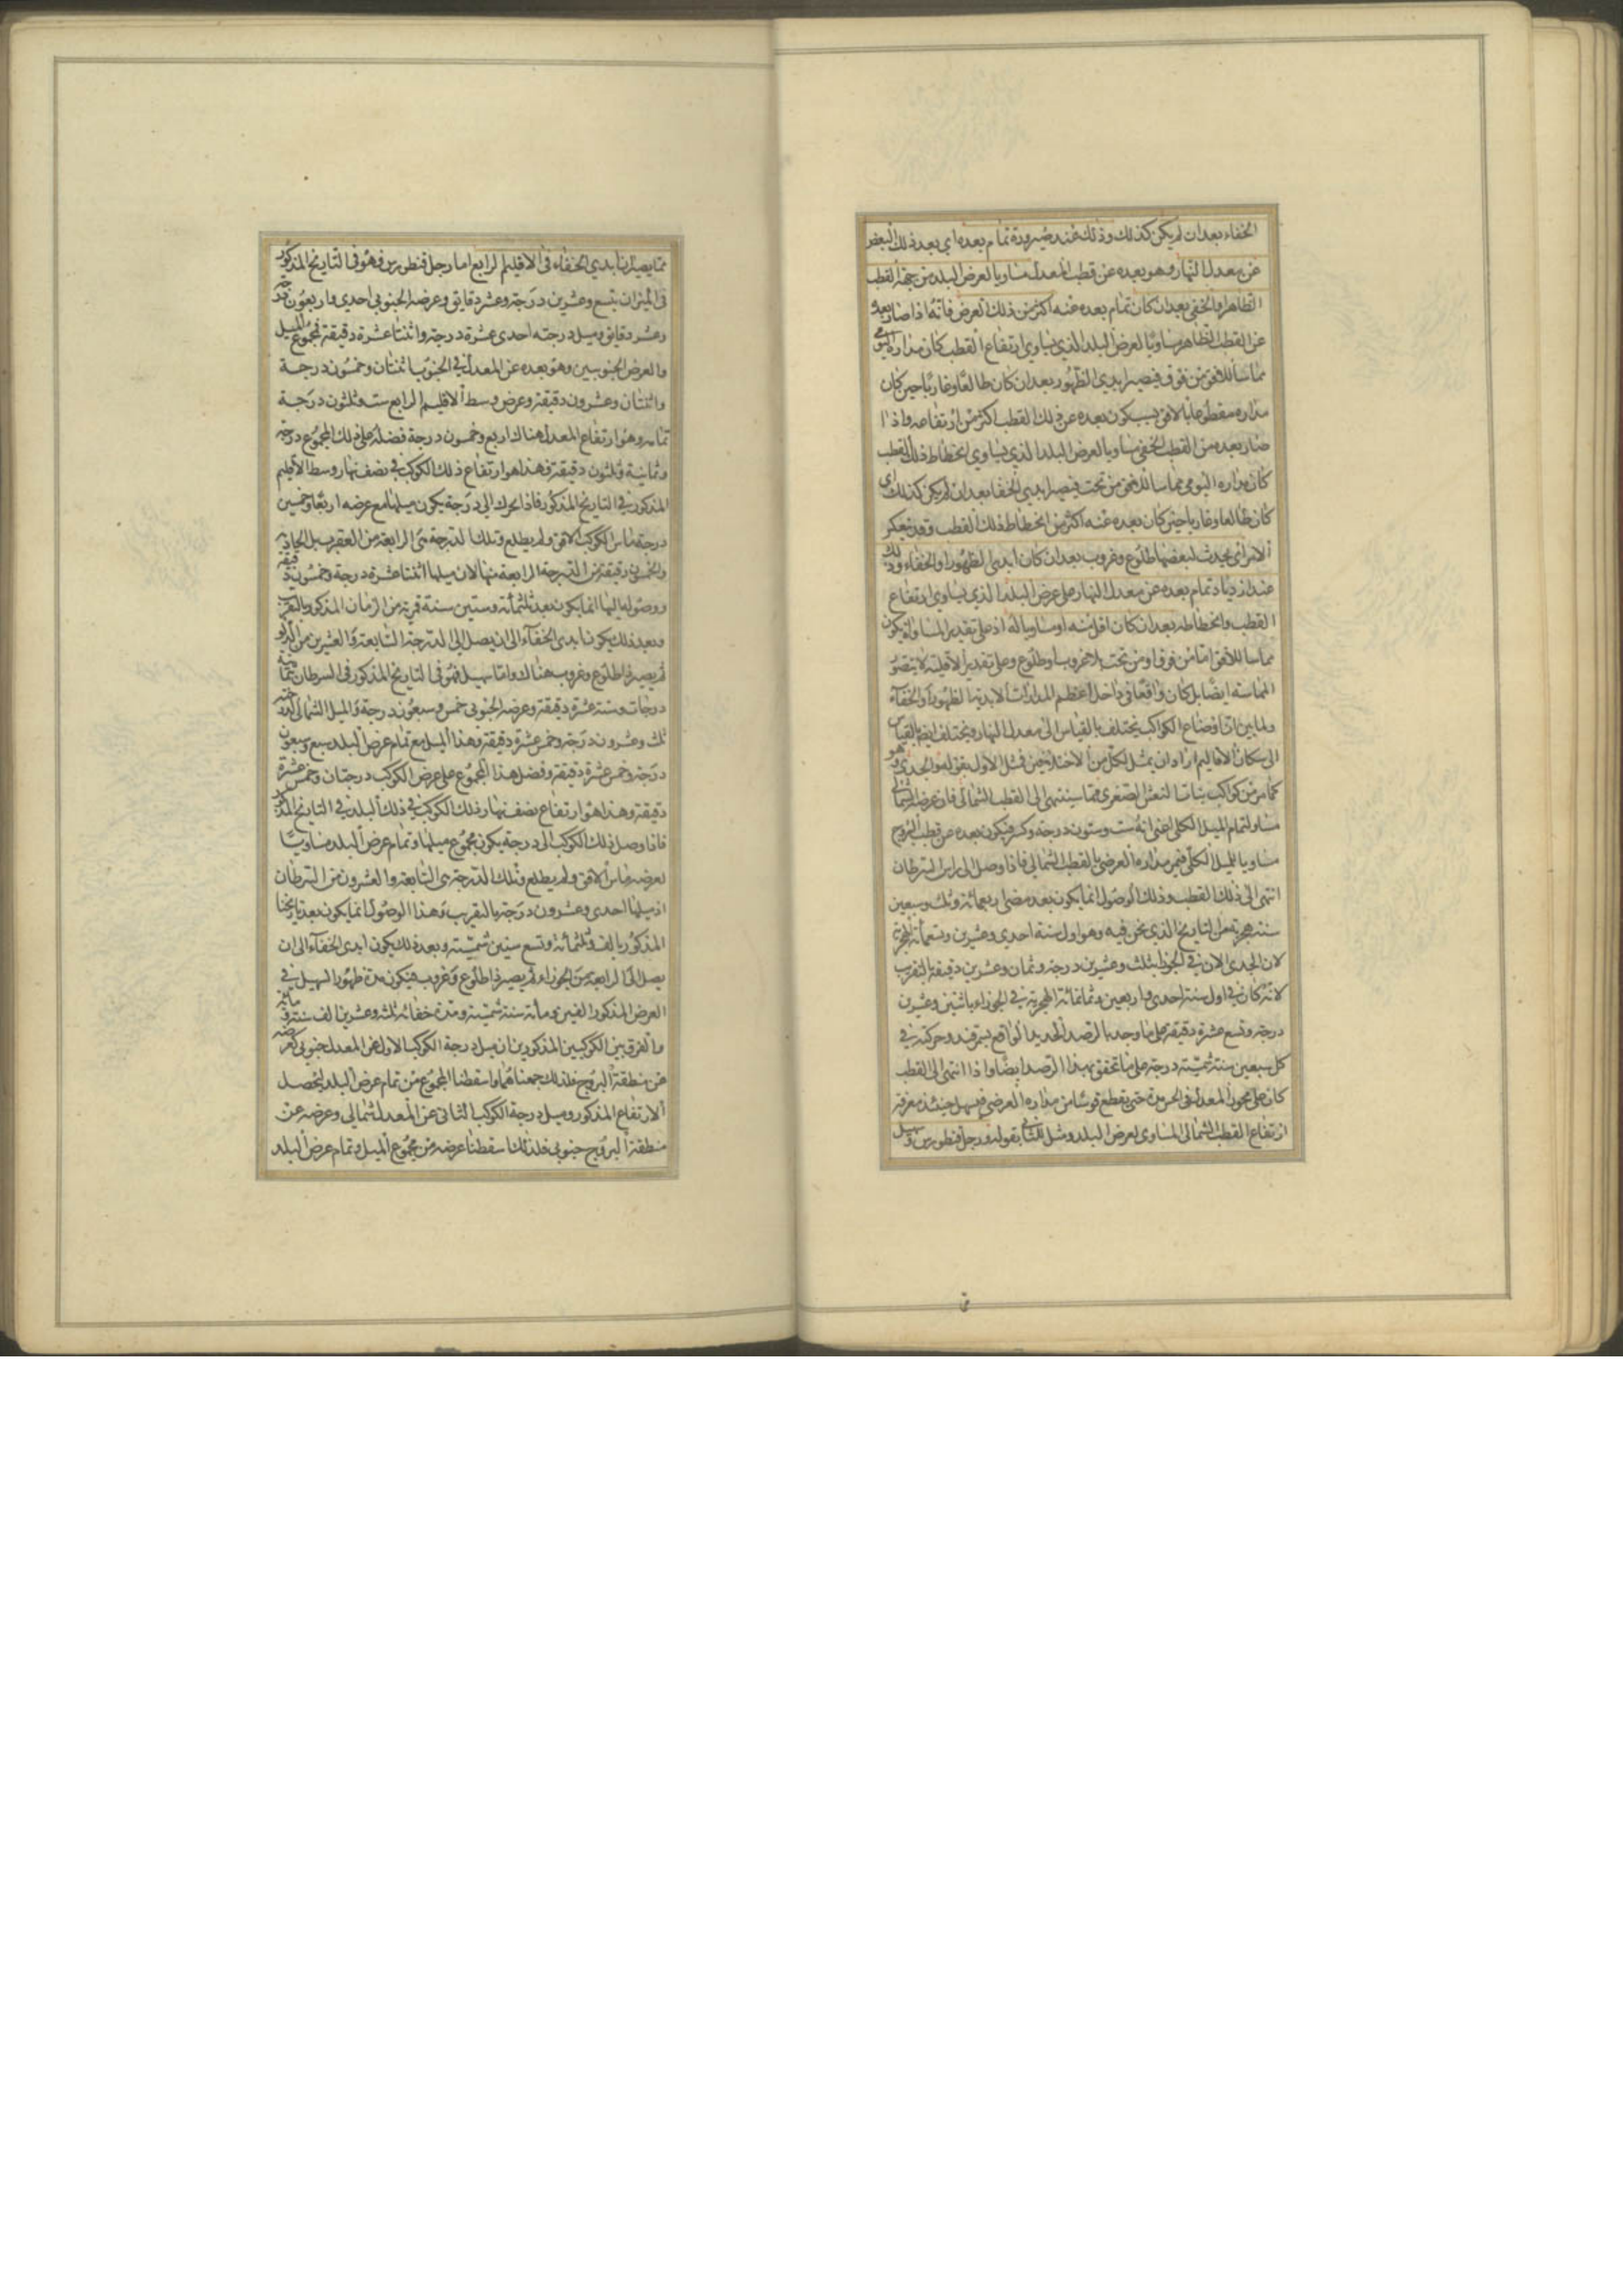 الخفاء بعد ان لم يكن كذلك وذلك عند صيرورة تمام بعده اي بعد ذلك البعض
عن معدل النهار وهو بعده عن قطب المعدل مساويا لعرض البلد من جهة القطب
الظاهر او الخفي بعد ان كان تمام بعده عنه اكثر من ذلك العرض فانه اذا صار بعده
عن القطب الظاهر مساويا لعرض البلد الذي يساوي ارتفاع القطب كان مداره اليومي
مماسا للافق من فوق فيصير ابدي الظهور بعد ان كان طالعا وغاربا حين كان
مداره مقطوعا بالافق بسبب كون بعده عن ذلك القطب اكثر من ارتفاعه واذا
صار بعده من القطب الخفي مساويا لعرض البلد الذي يساوي انحطاط ذلك القطب
كان مداره اليومي مماسا للافق من تحت فيصير ابدي الخفا بعد ان لم يكن كذلك اي
كان طالعا وغاربا حين كان بعده عنه اكثر من انحطاط ذلك القطب وقد ينعكس
الامر اي يحدث لبعضها طلوع وغروب بعد ان كان ابدي الظهور او الخفاء وذلك
عند ازدياد تمام بعده عن معدل النهار على عرض البلد الذي يساوي ارتفاع
القطب وانحطاطه بعد ان كان اقل منه او مساويا له اذ على تقدير المساواة يكون
مماسا للافق اما من فوق او من تحت بلا غروب او طلوع وعلى تقدير الاقلية لا يتصور
المماسة ايضا بل كان واقعا في داخل اعظم المدارات الابدية الظهور او الخفاء
ولما بين ان اوضاع الكواكب يختلف بالقياس الى معدل النهار ويختلف ايضا بالقياس
الى سكان الاقاليم اراد ان يمثل لكل من الاختلافين فمثل الاول بقوله والجدي وهو
كما مر من كواكب بنات النعش الصغرى مما سينتهي الى القطب الشمالي فان عرضه الشمالي
مساو لتمام الميل الكلي اعني انه ست وستون درجة وكسر فيكون بعده عن قطب البروج
مساويا للميل الكلي فيمر مداره العرضي بالقطب الشمالي فاذا وصل الى راس السرطان
انتهى الى ذلك القطب وذلك الوصول انما يكون بعد مضي اربعمائة وثلث وسبعين
سنة هجرية من التاريخ الذي نحن فيه وهو اول سنة احدى وعشرين وتسعمائة لهجرية
لان الجدي الان في الجوزا بثلث وعشرين درجة وثمان وعشرين دقيقة بالتقريب
لانه كان في اول سنة احدى واربعين وثمانمائة الهجرية في الجوزاء باثنتين وعشرين
درجة وتسع عشرة دقيقة على ما وجد بالرصد الجديد الواقع بسمرقند وحركته في
كل سبعين سنة شمسية درجة على ما تحقق بهذا الرصد ايضا واذا انتهى الى القطب
كان على محور المعدل في الحس مدة حتى يقطع قوسا من مداره العرضي فيسهل حينئذ معرفة
ارتفاع القطب الشمالي المساوي لعرض البلد ومثل للثاني بقوله ورجل قنطورس وسهيل
مما يصيران ابدي الخفاء في الاقليم الرابع اما رجل قنطورس فهو في التاريخ المذكور
في الميزان بتسع وعشرين درجة وعشر دقايق وعرضه الجنوبي احدى واربعون درجة
وعشر دقايق وميل درجته احدى عشرة درجة واثنتا عشرة دقيقة فمجموع الميل
والعرض الجنوبيين وهو بعده عن المعدل في الجنوب اثنتان وخمسون درجة
واثنتان وعشرون دقيقة وعرض وسط الاقليم الرابع ست وثلثون درجة
تمامه وهو ارتفاع المعدل هناك اربع وخمسون درجة فضله على ذلك المجموع درجة
وثمانية وثلثون دقيقة فهذا هو ارتفاع ذلك الكوكب في نصف نهار وسط الاقليم
المذكور في التاريخ المذكور فاذا تحرك الى درجة يكون ميلها مع عرضه اربعا وخمسين
درجة ماس الكوكب الافق ولم يطلع وتلك الدرجة هي الرابعة من العقرب بل الحادية
والخمسين دقيقة من الدرجة الرابعة منها لان ميلها اثنتا عشرة درجة وخمسون دقيقة
ووصوله اليها انما يكون بعد ثلثمائة وستين سنة قمرية من الزمان المذكور بالتقريب
وبعد ذلك يكون ابدي الخفاء الى ان يصل الى الدرجة السابعة والعشرين من الدلو
ثم يصير ذا طلوع وغروب هناك واما سهيل فهو في التاريخ المذكور في السرطان بثمانية
درجات وستة عشرة دقيقة وعرضه الجنوبي خمس وسبعون درجة والميل الشمالي لدرجته
ثلث وعشرون درجة وخمس عشرة دقيقة وهذا الميل مع تمام عرض البلد سبع وسبعون
درجة وخمس عشرة دقيقة وفضل هذا المجموع على عرض الكوكب درجتان وخمس عشرة
دقيقة وهذا هو ارتفاع نصف نهار ذلك الكوكب في ذلك البلد في التاريخ المذكور
فاذا وصل ذلك الكوكب الى درجة يكون مجموع ميلها وتمام عرض البلد مساويا
لعرضه ماس الافق ولم يطلع وتلك الدرجة هي السابعة والعشرون من السرطان
اذ ميلها احدى وعشرون درجة بالتقريب وهذا الوصول انما يكون بعد تاريخنا
المذكور بالف وثلثمائة وتسع سنين شمسية وبعد ذلك يكون ابدي الخفاء الى ان
يصل الى الرابعة من الجوزاء ثم يصير ذا طلوع وغروب فيكون مدة ظهور السهيل في
العرض المذكور الفين ومائة سنة شمسية ومدة خفائه ثلثة وعشرين الف سنة ومائة
والفرق بين الكوكبين المذكورين ان ميل درجة الكوكب الاول عن المعدل جنوبي كعرضه
عن منطقة البروج فلذلك جمعناهما واسقطنا المجموع من تمام عرض البلد ليحصل
الارتفاع المذكور وميل درجة الكوكب الثاني عن المعدل شمالي وعرضه عن
منطقة البروج جنوبي فلذلك اسقطنا عرضه من مجموع الميل وتمام عرض البلد